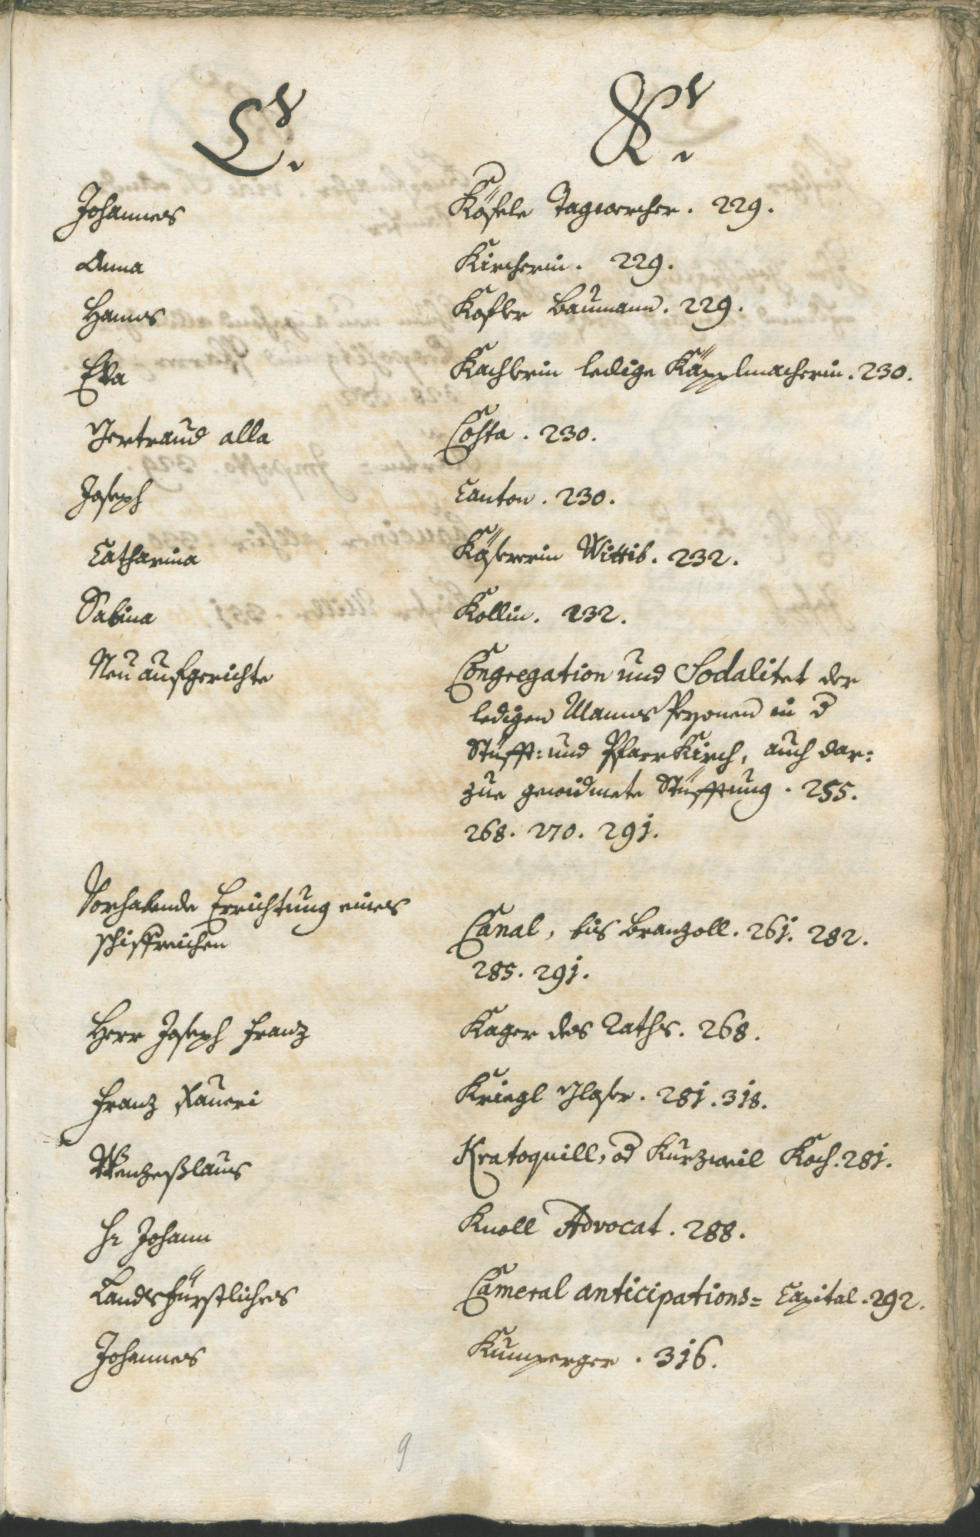 C. K.
Johannes Käsele Tagwercher. 229.
Anna Kircherin. 229.
Hanns Kofler Baumann. 229.
Eva Kachlerin ledige Käpplmacherin. 230.
Gertraud alla Costa. 230.
Joseph Canton. 230.
Catharina Käsererin Wittib. 232.
Sabina Kollin. 232.
Neu aufgerichte Congregation und Sodalitet der
ledigen Manns Persohnen in d
Stüfft: und Pfarr Kirch, auch dar:
zue gewidmete Stüfftung. 255.
268. 270. 291.
Vorhabende Errichtung eines
schiffreichen Canal, bis Branzoll. 261. 282.
285. 291.
Herr Joseph Franz Kager des Raths. 268.
Franz Xaueri Kriegl Glaser. 281. 318.
Wentzeßlaus Kratoquill, od Kurzweil Koch. 281.
Hr Johann Knoll Advocat. 288.
Landsfürstliches Cameral anticipations= Capital. 292.
Johannes Kumperger. 316.
9